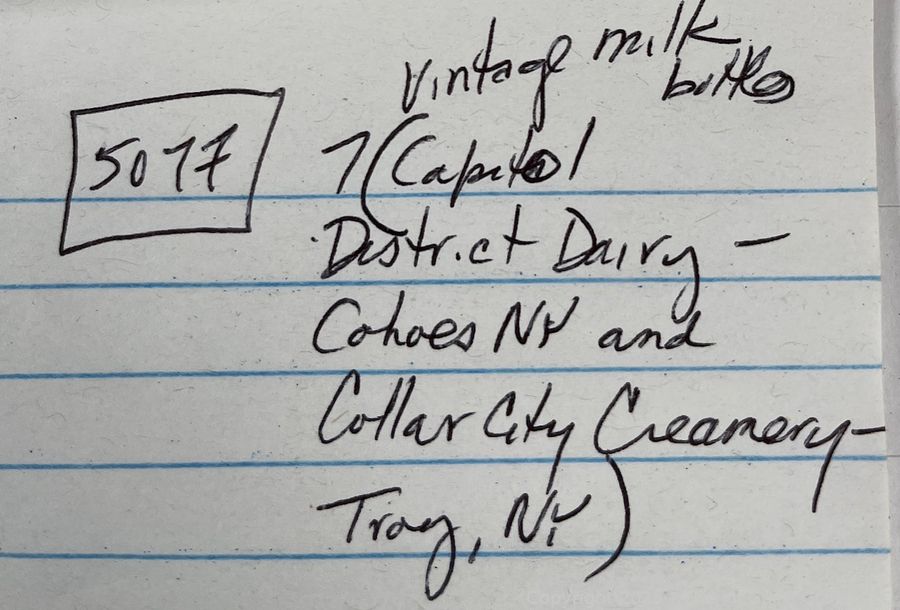 vintage milk
bottles
5077
7 (Capitol
District Dairy -
Cohoes NY and
Collar City Creamery -
Troy, NY)